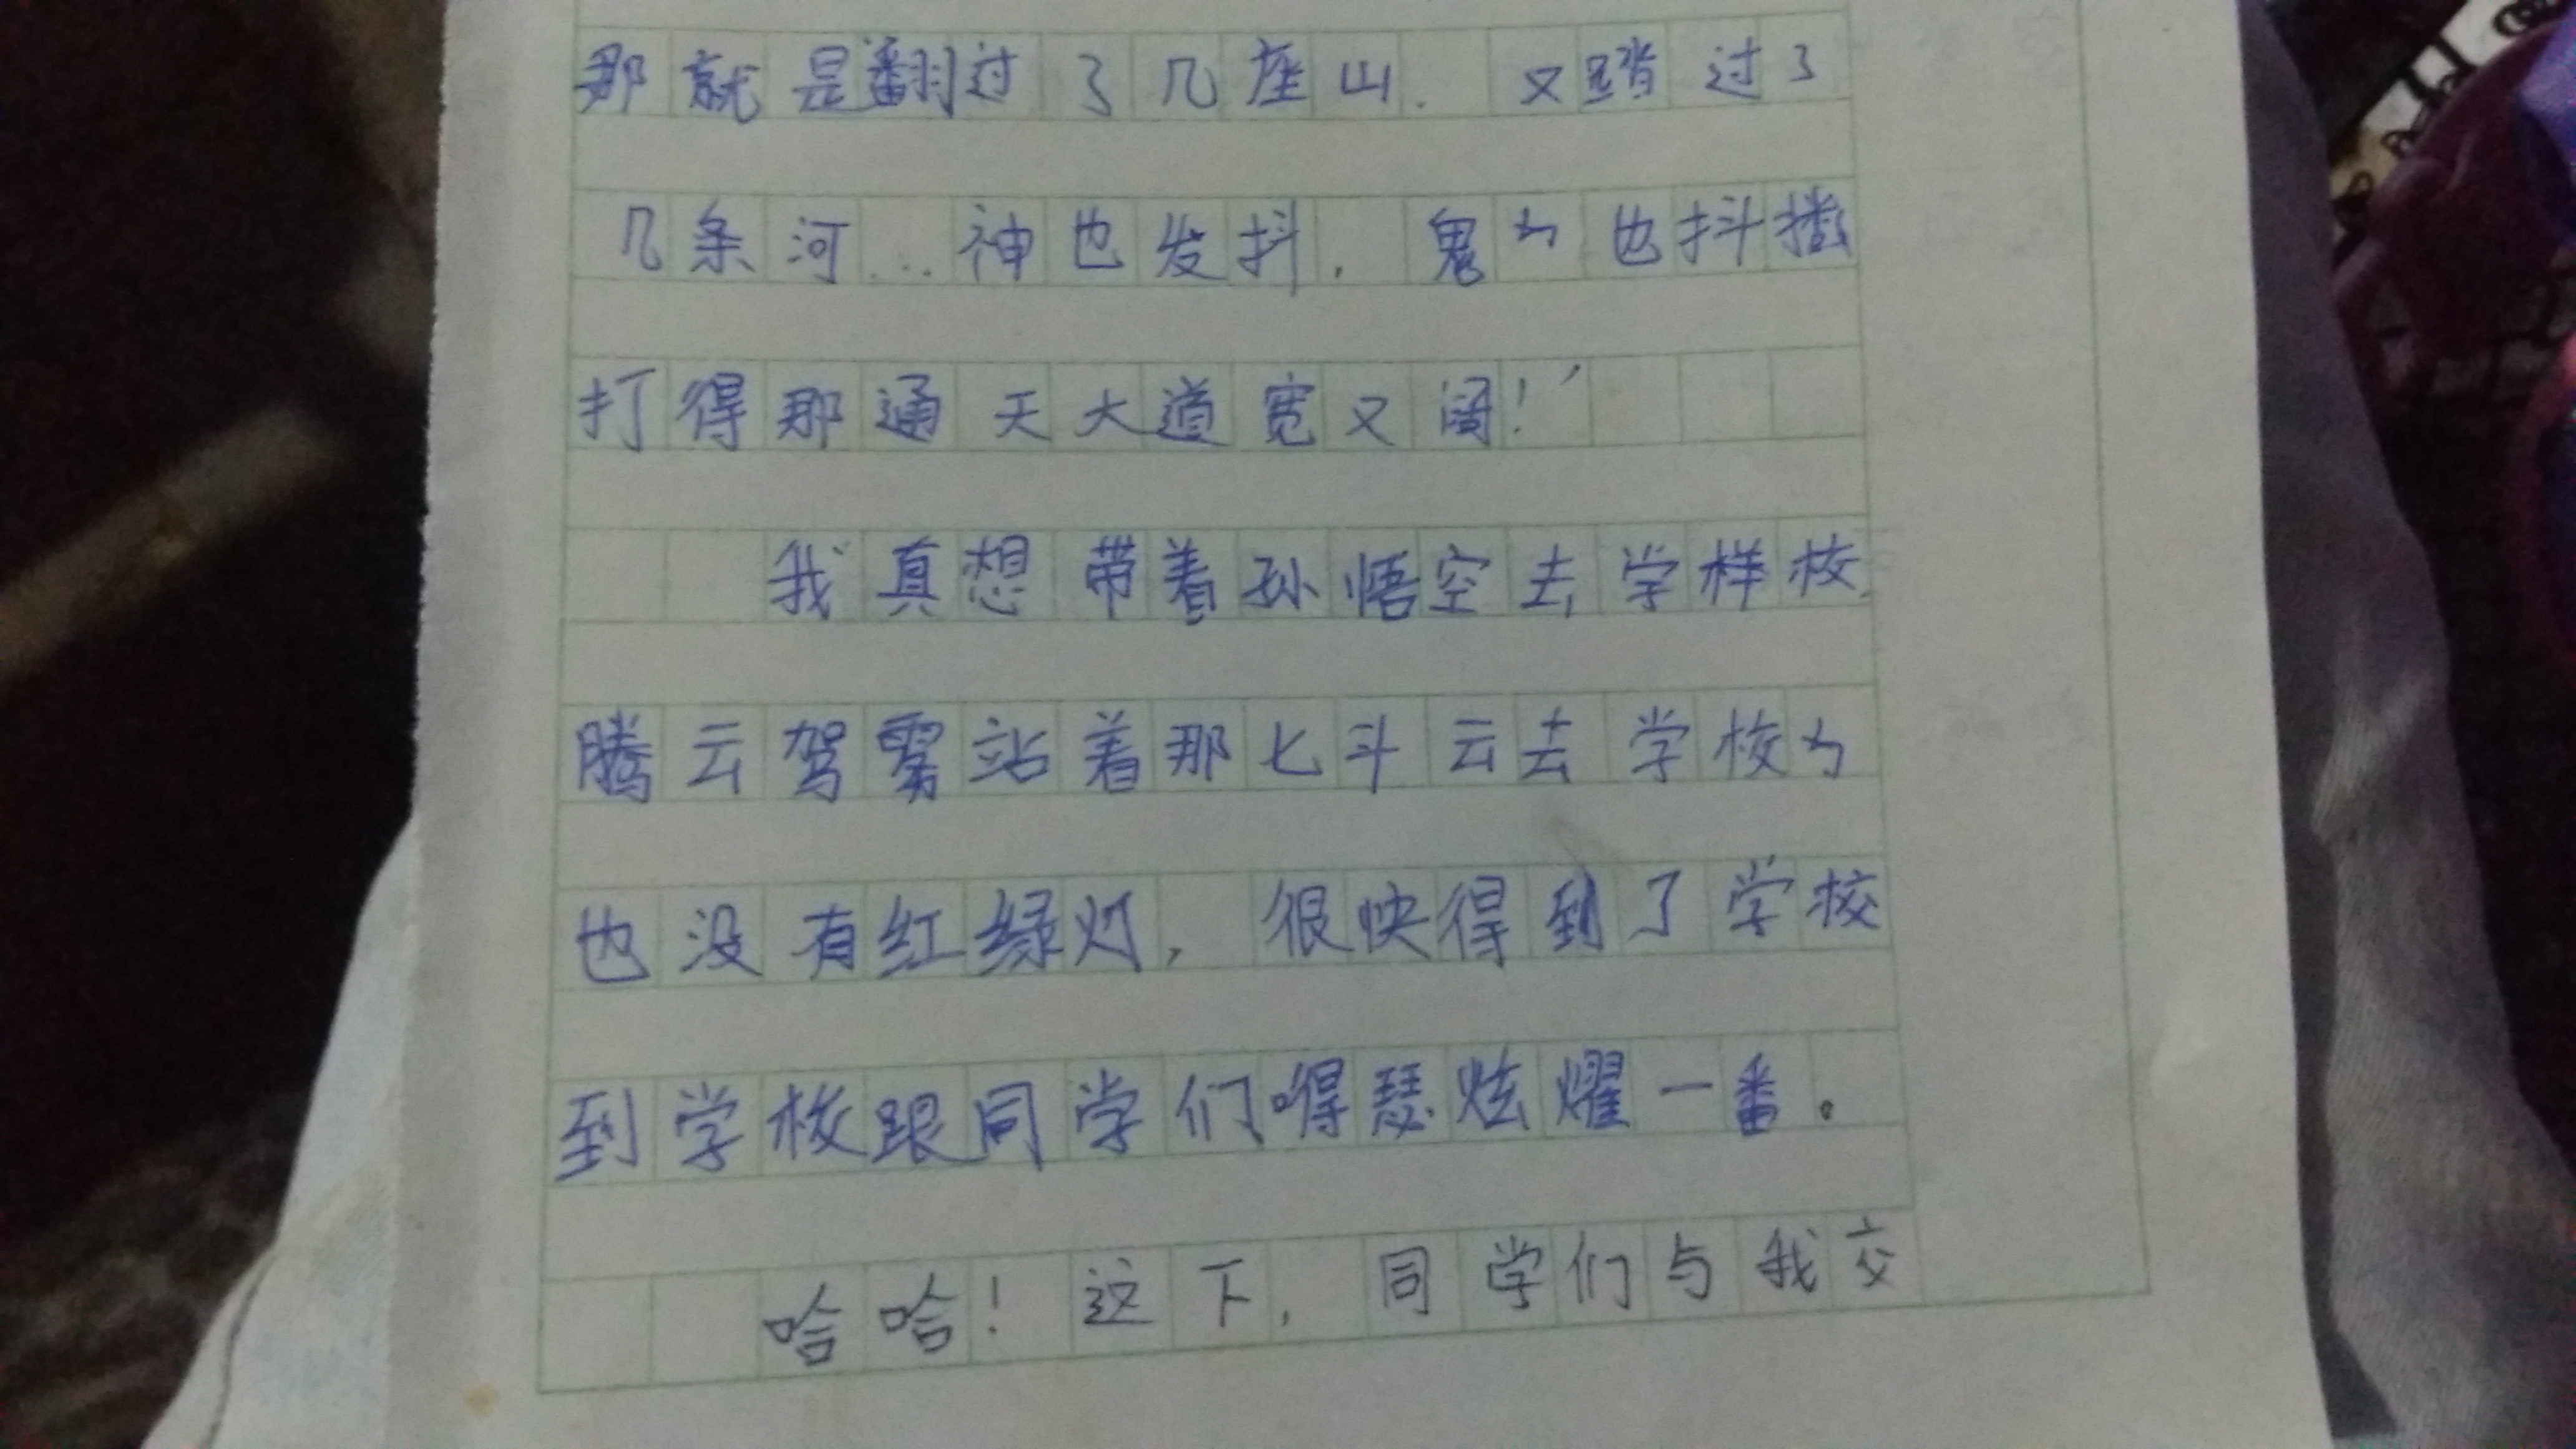 那就是翻过了几座山.又踏过了
几条河...神也发抖,鬼也抖擞
打得那通天大道宽又阔!'
我真想带着孙悟空去学样校
腾云驾雾站着那七斗云去学校
也没有红绿灯,很快得到了学校
到学校跟同学们嘚瑟炫耀一番。
哈哈!这下,同学们与我交